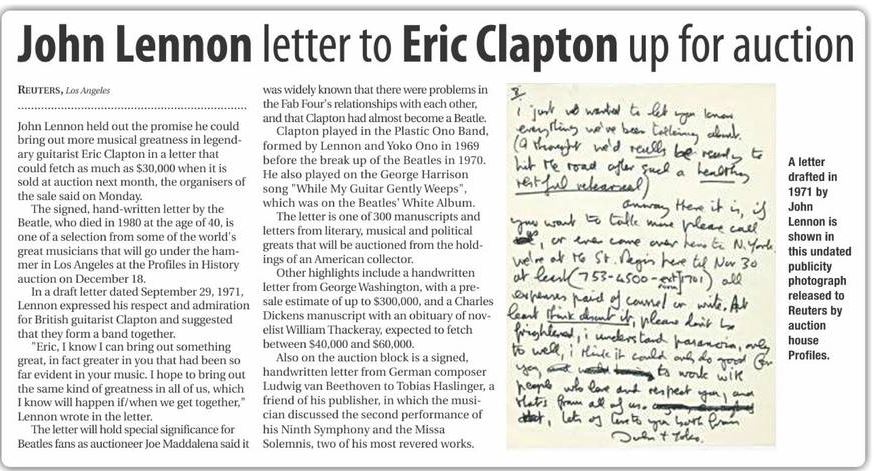 John Lennon letter to Eric Clapton up for auction
REUTERS, Los Angeles
John Lennon held out the promise he could
bring out more musical greatness in legend-
ary guitarist Eric Clapton in a letter that
could fetch as much as $30,000 when it is
sold at auction next month, the organisers of
the sale said on Monday.
The signed, hand-written letter by the
Beatle, who died in 1980 at the age of 40, is
one of a selection from some of the world's
great musicians that will go under the ham-
mer in Los Angeles at the Profiles in History
auction on December 18.
In a draft letter dated September 29, 1971,
Lennon expressed his respect and admiration
for British guitarist Clapton and suggested
that they form a band together.
"Eric, I know I can bring out something
great, in fact greater in you that had been so
far evident in your music. I hope to bring out
the same kind of greatness in all of us, which
I know will happen if/when we get together,"
Lennon wrote in the letter.
The letter will hold special significance for
Beatles fans as auctioneer Joe Maddalena said it
was widely known that there were problems in
the Fab Four's relationships with each other,
and that Clapton had almost become a Beatle.
Clapton played in the Plastic Ono Band,
formed by Lennon and Yoko Ono in 1969
before the break up of the Beatles in 1970.
He also played on the George Harrison
song "While My Guitar Gently Weeps",
which was on the Beatles' White Album.
The letter is one of 300 manuscripts and
letters from literary, musical and political
greats that will be auctioned from the hold-
ings of an American collector.
Other highlights include a handwritten
letter from George Washington, with a pre-
sale estimate of up to $300,000, and a Charles
Dickens manuscript with an obituary of nov-
elist William Thackeray, expected to fetch
between $40,000 and $60,000.
Also on the auction block is a signed,
handwritten letter from German composer
Ludwig van Beethoven to Tobias Haslinger, a
friend of his publisher, in which the musi-
cian discussed the second performance of
his Ninth Symphony and the Missa
Solemnis, two of his most revered works.
8
i just wanted to let you know
everything we've been talking about.
(a thought we'd really be ready to
hit the road after such a healthy
restful rehearsal)
anyway there it is, if
you want to talk more please call
, or even come over here to N.York.
we're at the St. Regis here til Nov 30
at least (753-4500 - ext 1701) all
expenses paid of course! or write. At
least think about it, please don't be
frightened, i understand paranoia, only
to well, i think it could only do good for
you, to work with
people who love and respect you, and
thats from all of us.
lots of love to you both from
John + Yoko.
A letter
drafted in
1971 by
John
Lennon is
shown in
this undated
publicity
photograph
released to
Reuters by
auction
house
Profiles.